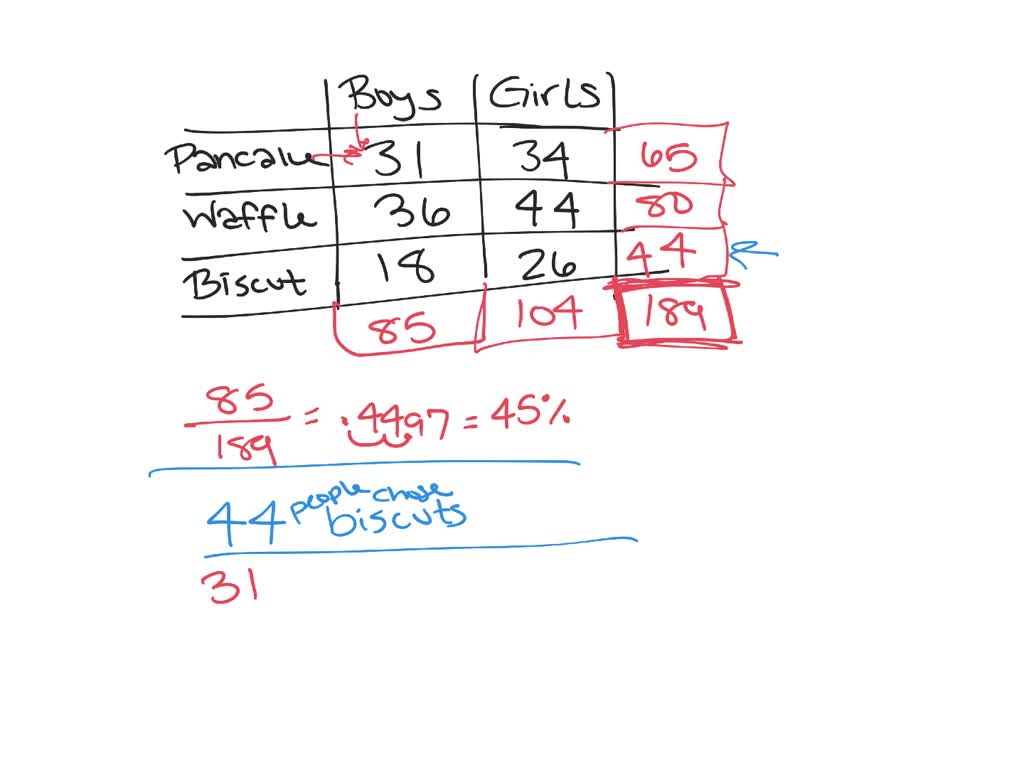 Boys Girls
Pancake 31 34 65
Waffle 36 44 80
Biscut 18 26 44
85 104 189
85/189 = .4497 = 45%
44 people chose biscuts
31